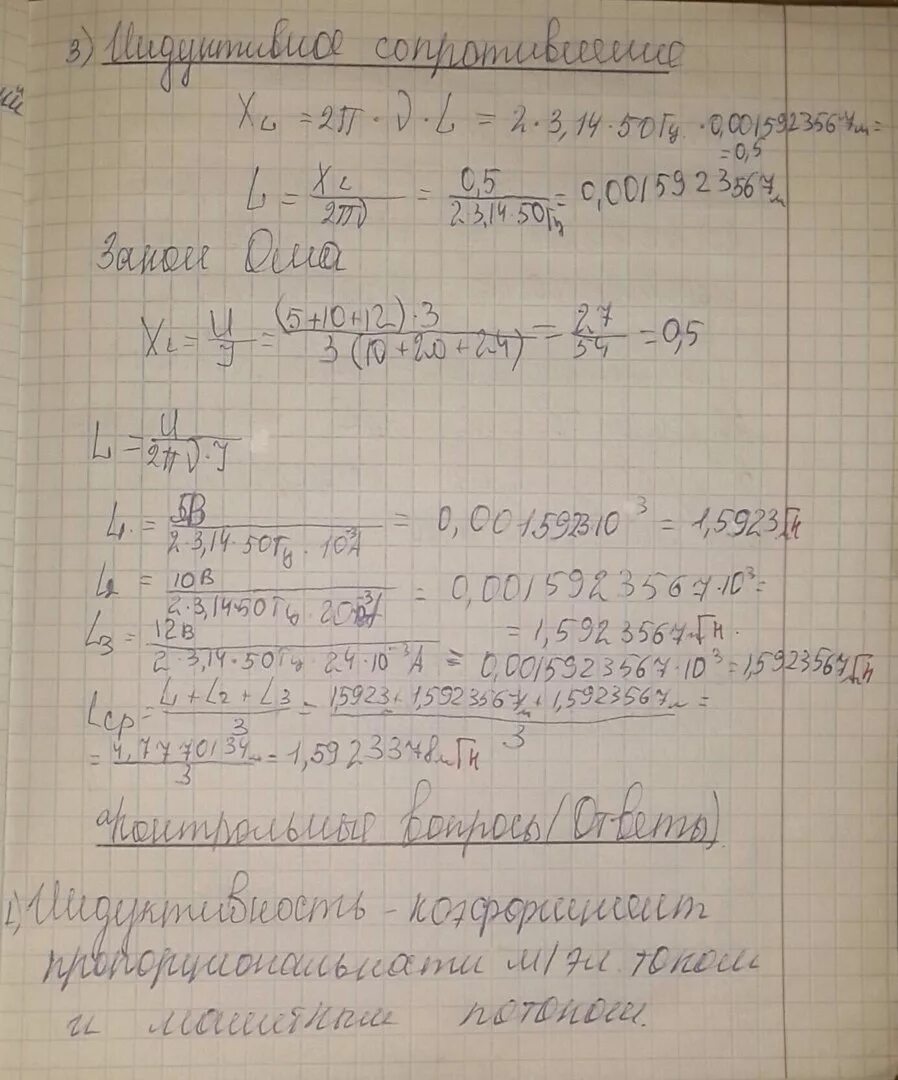 3) Индуктивное сопротивление
X_L = 2π · ν · L = 2·3,14·50Гц · 0,0015923567 =
= 0,5
L = X_L / 2πν = 0,5 / 2·3,14·50Гц = 0,0015923567
Закон Ома
X_L = U / J = (5+10+12)·3 / 3(10+20+24) = 27 / 54 = 0,5
L = U / 2πν·J
L₁ = 5В / 2·3,14·50Гц · 10⁻³А = 0,0015923·10³ = 1,5923Гн
L₂ = 10В / 2·3,14·50Гц · 20·10⁻³А = 0,0015923567·10³ =
= 1,5923567Гн.
L₃ = 12В / 2·3,14·50Гц · 24·10⁻³А = 0,0015923567·10³ = 1,5923567Гн
Lср = L₁ + L₂ + L₃ / 3 = 1,5923 + 1,5923567 + 1,5923567 / 3 =
= 4,7770134 / 3 = 1,5923378 Гн
Контрольные вопросы (Ответы)
1) Индуктивность - коэффициент
пропорциональности м/эл. током
и магнитным потоком.